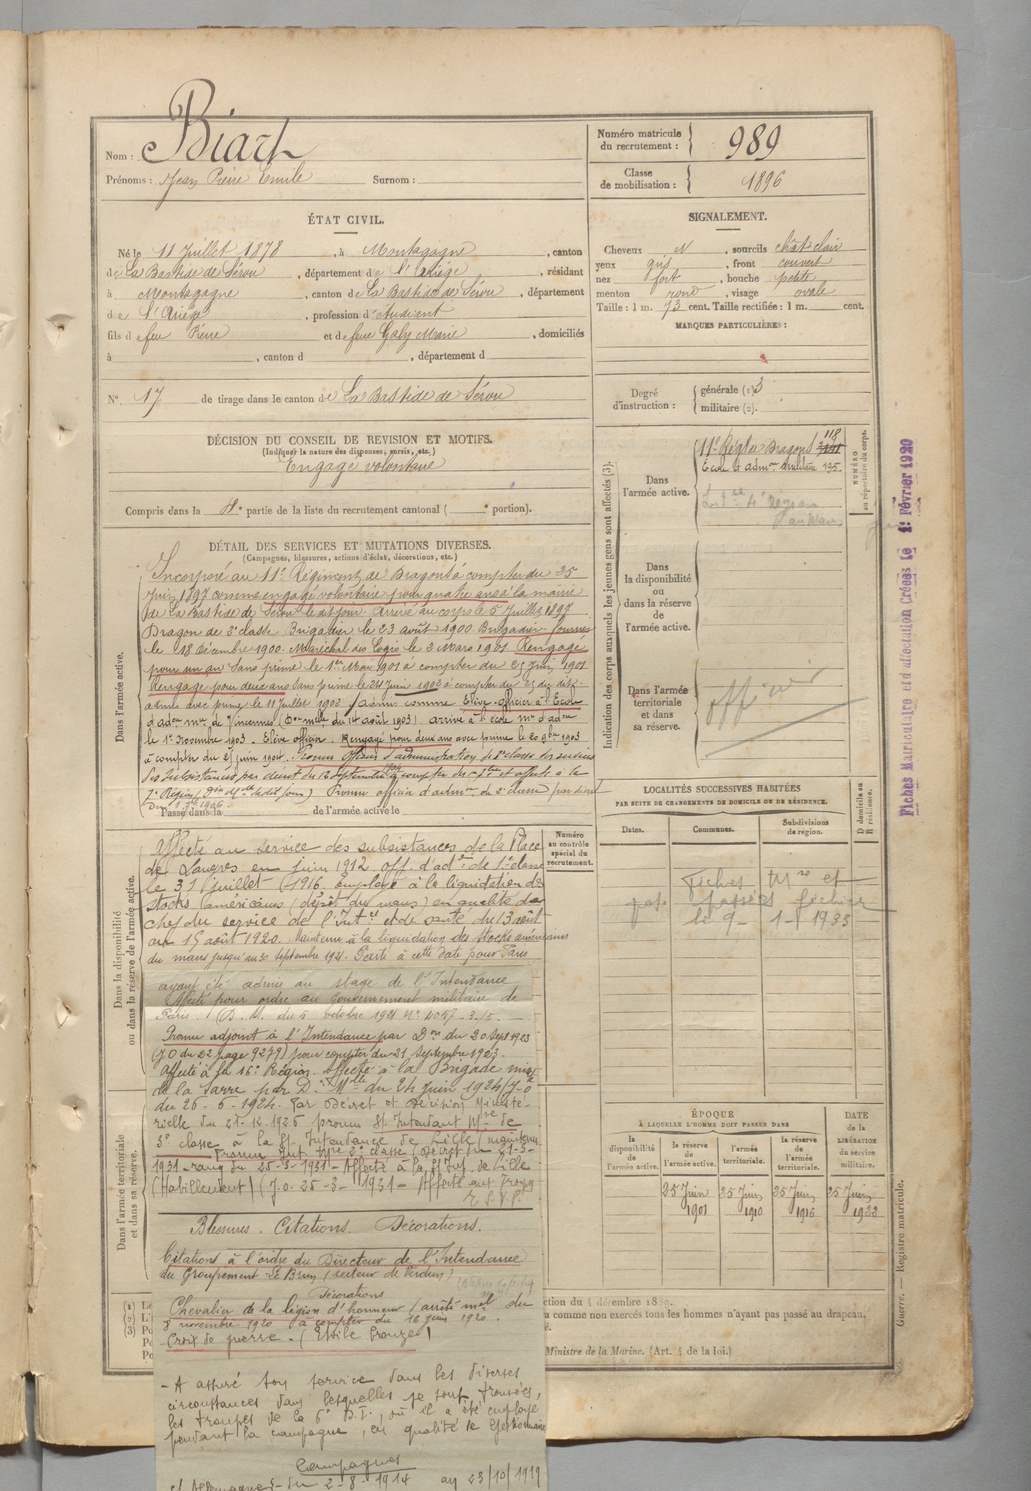 Nom : Biart
Prénoms : Jean Pierre Emile Surnom :
Numéro matricule du recrutement : 989
Classe de mobilisation : 1896
ÉTAT CIVIL.
Né le 11 Juillet 1878, à Montagagne, canton
de La Bastide de Sérou, département de l'Ariège, résidant
à Montagagne, canton de La Bastide de Sérou, département
de l'Ariège, profession d'étudiant
fils de feu Pierre et de feue Galy Marie, domiciliés
à , canton d , département d
N° 17 de tirage dans le canton de La Bastide de Sérou
SIGNALEMENT.
Cheveux N, sourcils chât clair
yeux gris, front couvert
nez fort, bouche petite
menton rond, visage ovale
Taille : 1 m. 73 cent. Taille rectifiée : 1 m. cent.
MARQUES PARTICULIÈRES :
Degré d'instruction : générale (1) 3
militaire (2).
DÉCISION DU CONSEIL DE REVISION ET MOTIFS.
(Indiquer la nature des dispenses, sursis, etc.)
Engagé volontaire
Compris dans la 4e partie de la liste du recrutement cantonal ( portion).
DÉTAIL DES SERVICES ET MUTATIONS DIVERSES.
(Campagnes, blessures, actions d'éclat, décorations, etc.)
Dans l'armée active.
Incorporé au 11e Régiment de Dragons à compter du 25
Juin 1897 comme engagé volontaire pour quatre ans à la mairie
de La Bastide de Sérou le dit jour. Arrivé au corps le 5 Juillet 1897
Dragon de 2e classe Brigadier le 23 août 1900 Brigadier-fourrier
le 18 Décembre 1900. Maréchal des Logis le 2 Mars 1901 Rengagé
pour un an sans prime le 1er Mai 1901 à compter du 25 Juin 1901
Rengagé pour deux ans sans prime le 24 Juin 1902 à compter du 25 du dit.
prime le 11 Juillet 1903 comme Elève-officier à l'Ecole
d'adon mre de Vincennes (Don melle du 14 août 1903) arrivé à l'école mre d'adon
le 1er Novembre 1903. Elève officier. Rengagé pour deux ans avec prime le 20 9bre 1903
à compter du 25 juin 1904. Promu Officier d'administration de 3e classe
des subsistances par décret du 12 Septembre 1904
Région Promu officier d'admon de 2e classe par décret
1906
Passé dans la de l'armée active le
Dans la disponibilité ou dans la réserve de l'armée active.
Affecté au service des subsistances de la Place
de Langres en juin 1912. off. d'adon de 1e classe
le 31 juillet 1916. employé à la liquidation des
stocks américains (dépôt du mans) en qualité de
chef du service de l'Intce et de santé du 13 août
au 15 août 1920. Maintenu à la liquidation des stocks américains
du mans jusqu'au 30 septembre 1921. Parti à cette date pour Paris
ayant été admis au stage de l'Intendance
Affecté pour ordre au Gouvernement militaire de
Paris. (D. M. du 5 octobre 1921 No 4057-3/5.
Promu adjoint à l'Intendance par Don du 20 Sept 1923
(JO du 22 page 9279) pour compter du 21 Septembre 1923.
Affecté à la 16e Région. Affecté à la Brigade mixte
de la Sarre par D. Mlle du 24 juin 1924 (J.O
du 26-6-1924. Par Décret et Décision Ministé-
rielle du 21-12-1926 promu St Intendant Mre de
3e classe à la St Intendance de Lille
Promu Int. 2e classe (Décret du 21-3-
1931 - rang du 25-3-1931 - Affecté à la St Int. de Lille
(Habillement) (J.O. 25-3-1931 - Affecté aux
T.S.V.P.
Dans l'armée territoriale et dans sa réserve.
Blessures. Citations. Décorations.
Citations à l'ordre du Directeur de l'Intendance
du Groupement Le Brun (secteur de Verdun)
Décorations
Chevalier de la légion d'honneur (arrêté mel du
8 novembre 1920 à compter du 16 juin 1920
Croix de guerre. (Etoile bronze)
- A assuré son service dans les diverses
circonstances dans lesquelles se sont trouvées,
les troupes de la 6e D.I., où il a été employé
pendant la campagne, en qualité de Gestionnaire
Campagnes
c/ Allemagne du 2-8-1914 au 23/10/1919
Indication des corps auxquels les jeunes gens sont affectés (3).
NUMÉRO au répertoire du corps.
Dans l'armée active.
11e Régt de Dragons 118
Ecole d'admon militaire 195.
4e Région
au Mans
Dans la disponibilité ou dans la réserve de l'armée active.
Dans l'armée territoriale et dans sa réserve.
officier
LOCALITÉS SUCCESSIVES HABITÉES
PAR SUITE DE CHANGEMENTS DE DOMICILE OU DE RÉSIDENCE.
Dates. Communes. Subdivisions de région. D domicile ou R résidence.
Numéro au contrôle spécial du recrutement.
Fiches Mre et
pas. passées fichier
le 9-1-1933
ÉPOQUE
À LAQUELLE L'HOMME DOIT PASSER DANS
la disponibilité de l'armée active. la réserve de l'armée active. l'armée territoriale. la réserve de l'armée territoriale. DATE de la LIBÉRATION du service militaire.
25 Juin 1901 25 Juin 1910 25 Juin 1916 25 Juin 1922
Fiches Matriculaire et d'affectation Créées le 1er Février 1920
Guerre. — Registre matricule.
(1) L
(2) L
(3) P
Po
Po
ction du 4 décembre 1889.
a comme non exercés tous les hommes n'ayant pas passé au drapeau.
Ministre de la Marine. (Art. 4 de la loi.)